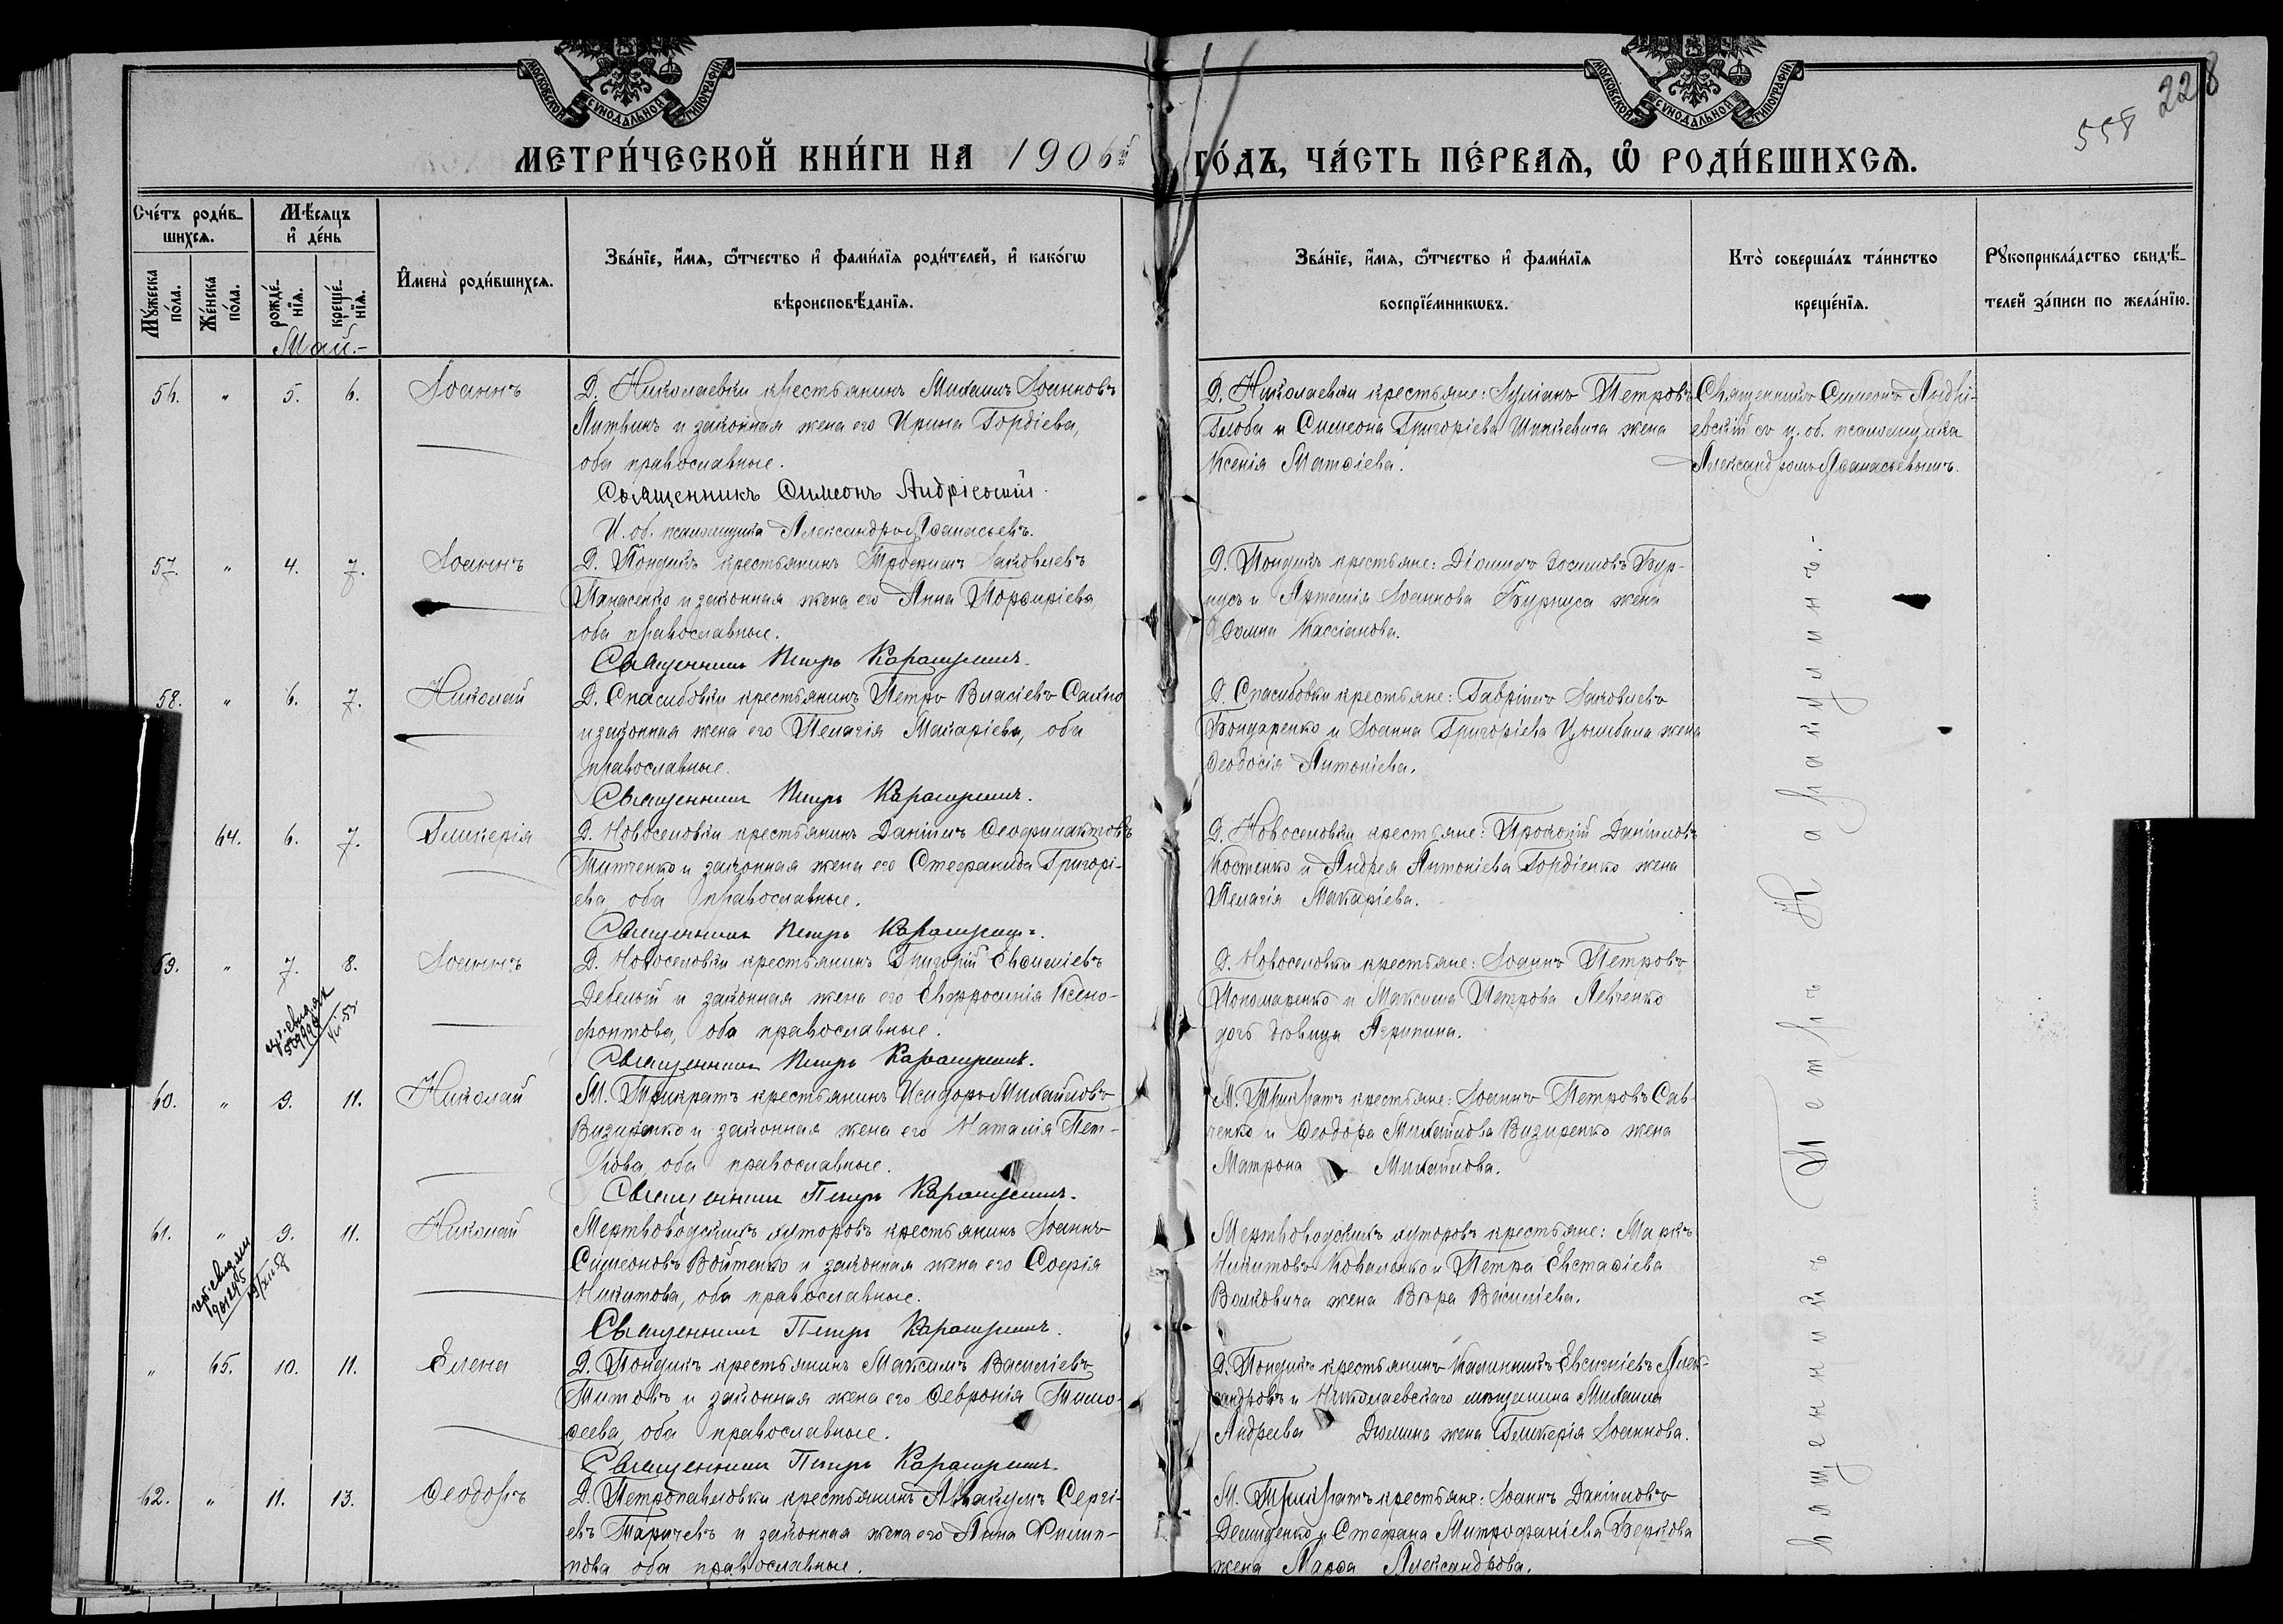 МОСКОВСКОЙ СѴНОДАЛЬНОЙ ТИПОГРАФІИ
МОСКОВСКОЙ СѴНОДАЛЬНОЙ ТИПОГРАФІИ
228
558
МЕТРИ́ЧЕСКОЙ КНИ́ГИ НА 1906й ГО́ДЪ, ЧА́СТЬ ПЕ́РВАЯ, Ѡ҆ РОДИ́ВШИХСЯ.
Сче́тъ роди́в-
шихся.
Мѣ́сяцъ
и҆ де́нь
Мꙋ́жеска по́ла.
Же́нска по́ла.
рожде́-нїя.
креще́-нїя.
И҆мена̀ роди́вшихся.
Зва́нїе, и҆́мя, ѻ҆́тчество и҆ фами́лїя роди́телей, и҆ како́гѡ
вѣроисповѣ́данїя.
Зва́нїе, и҆́мя, ѻ҆́тчество и҆ фами́лїя
воспрїе́мникѡвъ.
Кто̀ соверша́лъ та́инство
креще́нїя.
Рꙋкоприкла́дство свидѣ́-
телей за́писи по жела́нїю.
Май.-
56. " 5. 6. Іоаннъ
Д. Николаевки крестьянинъ Михаилъ Іоанновъ
Литвинъ и законная жена его Ирина Гордіева,
оба православные.
Священникъ Симеонъ Андріевскій
И. об. псаломщика Александръ Аѳанасьевъ.
Д. Николаевки крестьяне: Іуліанъ Петровъ
Глоба и Симеона Григоріева Шинкевича жена
Ксенія Матѳіева.
Священникъ Симеонъ Андрі-
евскій съ и. об. псаломщика
Александромъ Аѳанасьевымъ.
57. " 4. 7. Іоаннъ
Д. Пондикъ крестьянинъ Трофимъ Іаковлевъ
Панасенко и законная жена его Анна Порфиріева
оба православные.
Священникъ Петръ Карашулинъ.
Д. Пондикъ крестьяне: Діомидъ Зосимовъ Бур-
нусъ и Артемія Іоаннова Бурнуса жена
Домна Кассіанова.
58. " 6. 7. Николай
Д. Спасибовки крестьянинъ Петръ Власіевъ Салко
и законная жена его Пелагія Макаріева, оба
православные.
Священникъ Петръ Карашулинъ.
Д. Спасибовки крестьяне: Гавріилъ Іаковлевъ
Бондаренко и Іоанна Григоріева Цымбала жена
Ѳеодосія Антоніева.
64. 6. 7. Гликерія
Д. Новоселовки крестьянинъ Даніилъ Ѳеофилактовъ
Титченко и законная жена его Стефанида Григорі-
ева, оба православные.
Священникъ Петръ Карашулинъ.
Д. Новоселовки крестьяне: Прокопій Даніиловъ
Костенко и Андрея Антоніева Гордіенко жена
Пелагія Макаріева.
59. " 7. 8. Іоаннъ
Д. Новоселовки крестьянинъ Григорій Евфиміевъ
Дебелый и законная жена его Евфросинія Ксено-
фонтова, оба православные.
Священникъ Петръ Карашулинъ.
Д. Новоселовки крестьяне: Іоаннъ Петровъ
Пономаренко и Максима Петрова Левченко
дочь дѣвица Агрипина.
60. " 9. 11. Николай
М. Трикратъ крестьянинъ Исидоръ Михайловъ
Визиренко и законная жена его Наталія Пет-
рова, оба православные.
Священникъ Петръ Карашулинъ.
М. Трикратъ крестьяне: Іоаннъ Петровъ Сав-
ченко и Ѳеодора Михайлова Визиренко жена
Матрона Михайлова.
61. " 9. 11. Николай
Мертвоводскихъ хуторовъ крестьянинъ Іоаннъ
Симеоновъ Войтенко и законная жена его Софія
Никитова, оба православные.
Священникъ Петръ Карашулинъ.
Мертвоводскихъ хуторовъ крестьяне: Маркъ
Никитовъ Коваленко и Петра Евстафіева
Волковича жена Вѣра Василіева.
" 65. 10. 11. Елена
Д. Пондикъ крестьянинъ Максимъ Василіевъ
Титовъ и законная жена его Ѳевронія Тимо-
ѳеева, оба православные.
Священникъ Петръ Карашулинъ.
Д. Пондикъ крестьянинъ Калинникъ Евсигніевъ Алек-
сандровъ и Николаевскаго мѣщанина Михаила
Андреева Дюмина жена Гликерія Іоаннова.
62. " 11. 13. Ѳеодоръ
Д. Петропавловки крестьянинъ Аввакумъ Сергі-
евъ Таричевъ и законная жена его Анна Филип-
пова оба православные.
М. Трикратъ крестьяне: Іоаннъ Даніиловъ
Демиденко и Стефана Митрофаніева Беркова
жена Марфа Александрова.
вященникъ Петръ Карашулинъ.-